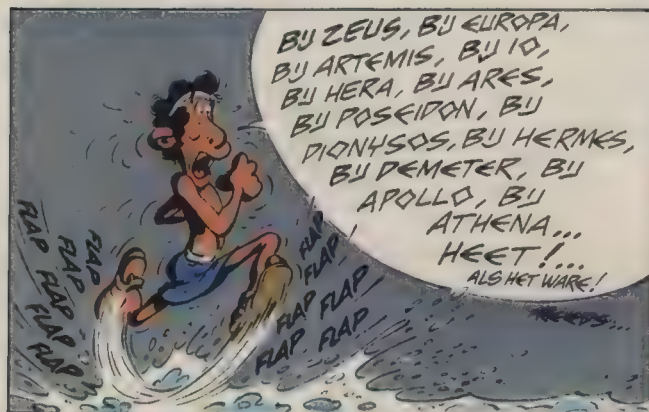 BIJ ZEUS, BIJ EUROPA,
BIJ ARTEMIS, BIJ IO,
BIJ HERA, BIJ ARES,
BIJ POSEIDON, BIJ
DIONYSOS, BIJ HERMES,
BIJ DEMETER, BIJ
APOLLO, BIJ
ATHENA...
HEET!...
ALS HET WARE!
FLAP
FLAP
FLAP
FLAP
FLAP
FLAP
FLAP
FLAP
FLAP
FLAP
FLAP FLAP
FLAP FLAP
FLAP FLAP